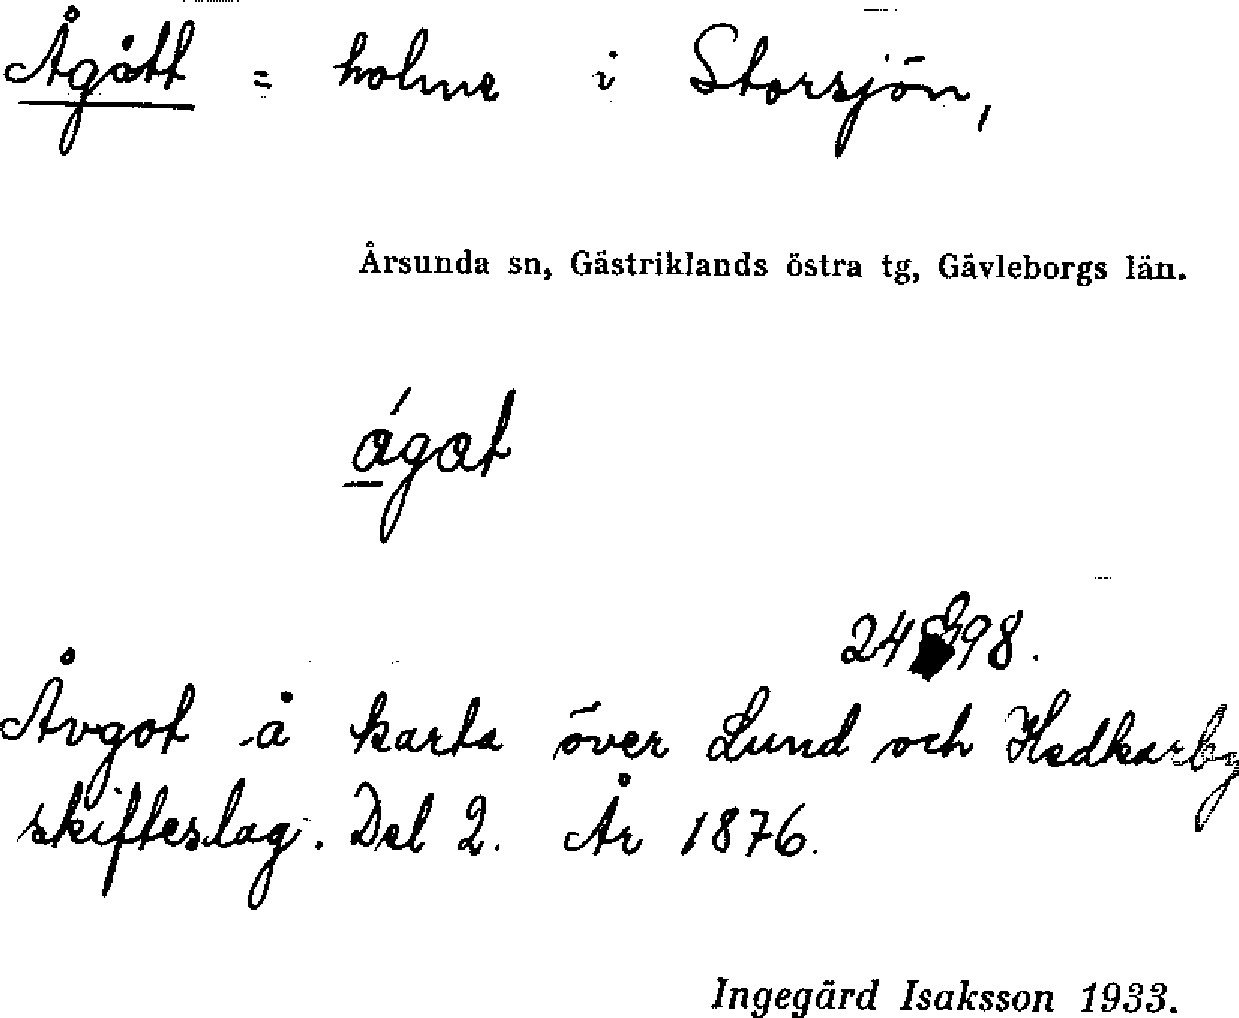 Ågått = holme i Storsjön,
Årsunda sn, Gästriklands östra tg, Gävleborgs län.
ágat
98.
Åvgot å karta över Lund och Hedkarby
skifteslag. Del 2. År 1876.
Ingegärd Isaksson 1933.